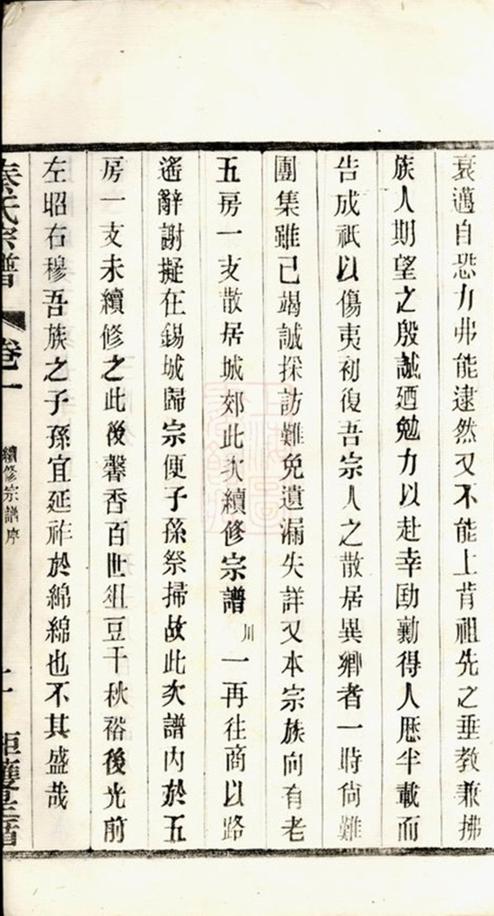 衰邁自恐力弗能逮然又不能上背祖先之垂教兼拂
族人期望之殷誠廼勉力以赴幸劻勷得人歷半載而
告成祇以傷夷初復吾宗人之散居異鄉者一時尙難
團集雖已竭誠採訪難免遺漏失詳又本宗族向有老
五房一支散居城郊此次續修宗譜川一再往商以路
遙辭謝擬在錫城歸宗便子孫祭掃故此次譜內於五
房一支未續修之此後馨香百世俎豆千秋裕後光前
左昭右穆吾族之子孫宜延祚於綿綿也不其盛哉
秦氏宗譜 卷一 續修宗譜序